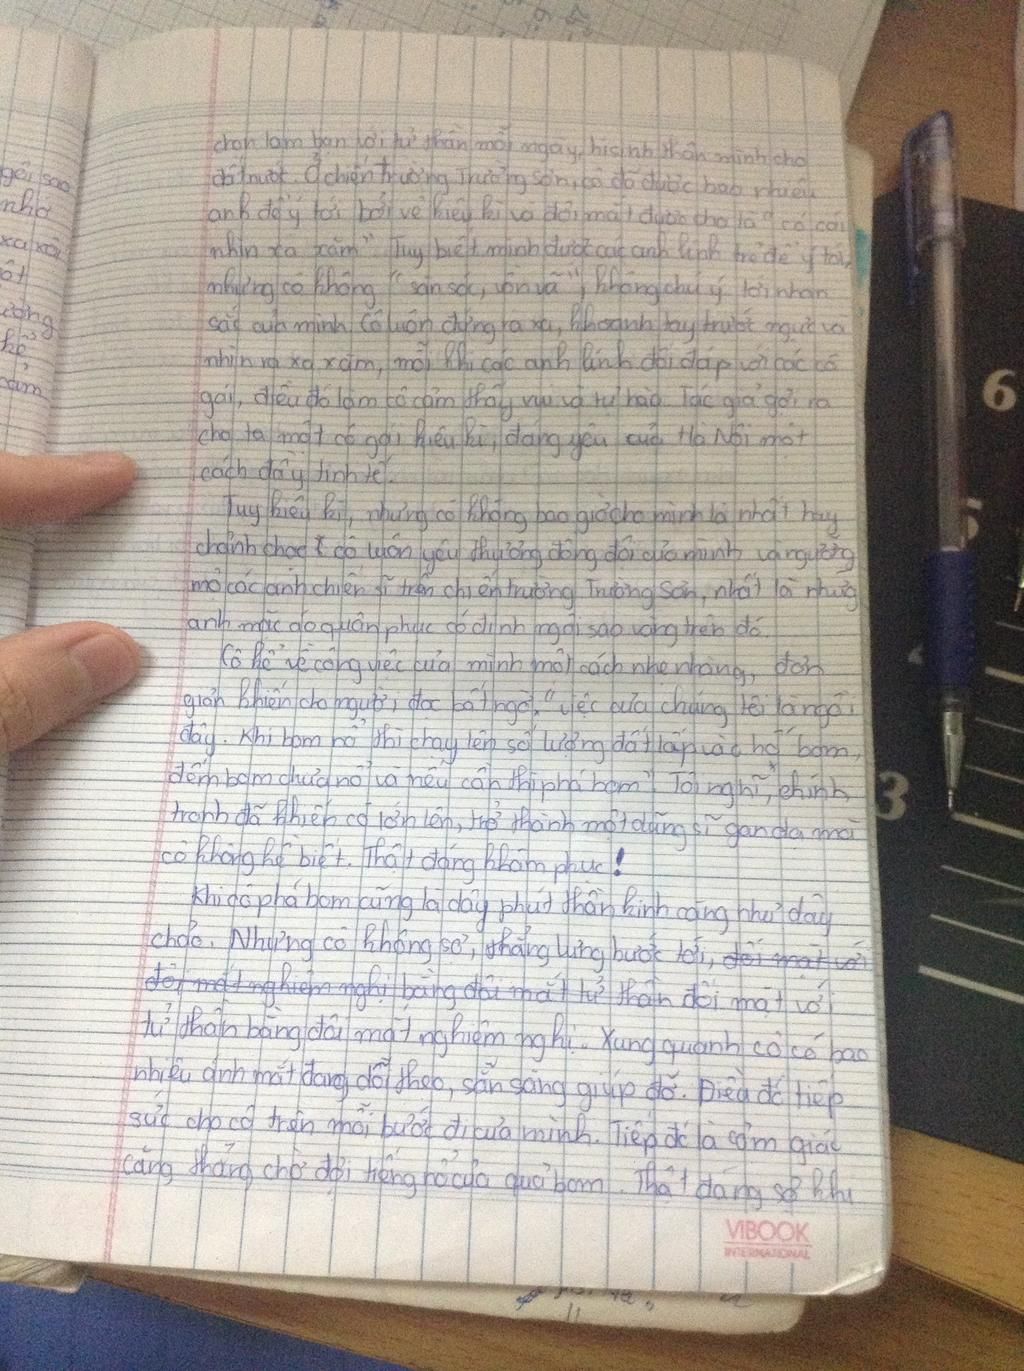 gôi sao
nhờ
xa xôi
ột
ương
hể
cảm
chọn làm bạn với tử thần mỗi ngày, hi sinh thân mình cho
đất nước. Ở chiến trường Trường Sơn, cô đã được bao nhiêu
anh để ý tới bởi vẻ kiêu kì và đôi mắt được cho là "có cái
nhìn xa xăm". Tuy biết mình được các anh lính trẻ để ý tới,
nhưng cô không "săn sóc, vồn vã", không chú ý tới nhan
sắc của mình. Cô luôn đứng ra xa, khoanh tay trước ngực và
nhìn ra xa xăm, mỗi khi các anh lính đối đáp với các cô
gái, điều đó làm cô cảm thấy vui và tự hào. Tác giả gợi ra
cho ta một cô gái kiêu kì, đáng yêu của Hà Nội một
cách đầy tinh tế.
Tuy kiêu kì, nhưng cô không bao giờ cho mình là nhất hay
chảnh choẹ cô luôn yêu thương đồng đội của mình và ngưỡng
mộ các anh chiến sĩ trên chiến trường Trường Sơn, nhất là những
anh mặc áo quân phục có đính ngôi sao vàng trên đó.
Cô kể về công việc của mình một cách nhẹ nhàng, đơn
giản khiến cho người đọc bất ngờ, "việc của chúng tôi là ngồi
đây. Khi bom nổ thì chạy lên số lượng đất lấp vào hố bom,
đếm bom chưa nổ và nếu cần thì phá bom". Tôi nghĩ, chính
tranh đã khiến cô lớn lên, trở thành một dũng sĩ gan dạ mà
cô không hề biết. Thật đáng khâm phục!
Khi cô phá bom cũng là giây phút thần kinh căng như dây
chão. Nhưng cô không sợ, thẳng lưng bước tới, đối mặt với
đôi mắt nghiêm nghị bằng đôi mắt tử thần đối mặt với
tử thần bằng đôi mắt nghiêm nghị. Xung quanh cô có bao
nhiêu ánh mắt đang dõi theo, sẵn sàng giúp đỡ. Điều đó tiếp
sức cho cô trên mỗi bước đi của mình. Tiếp đó là cảm giác
căng thẳng chờ đợi tiếng nổ của quả bom. Thật đáng sợ khi
VIBOOK
INTERNATIONAL
6
5
4
3